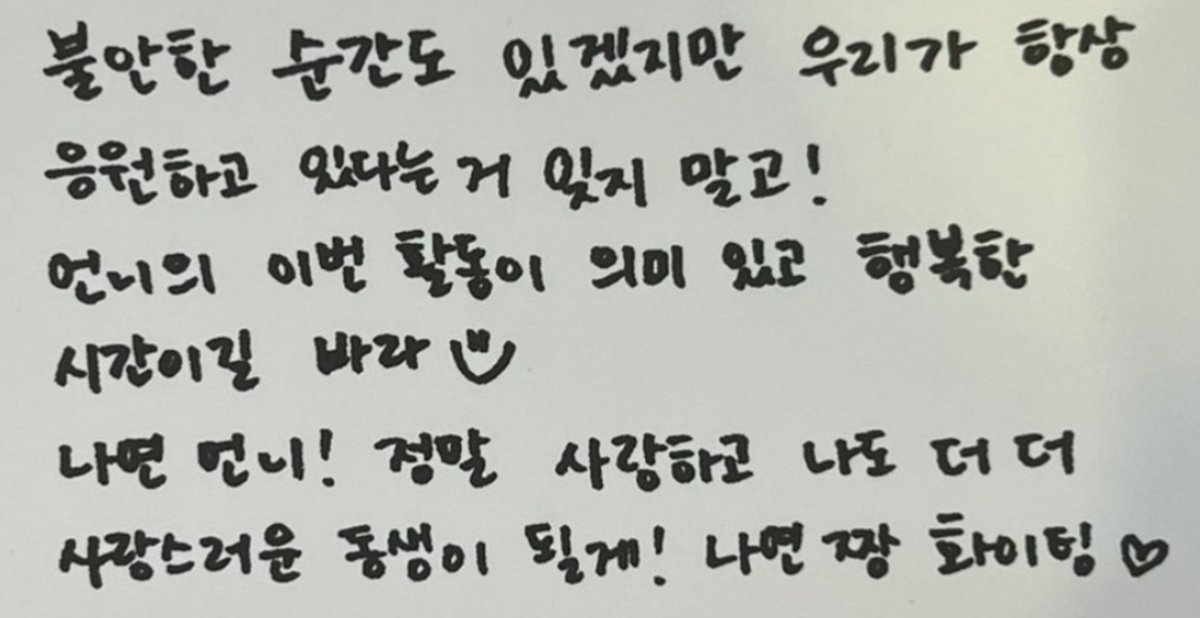 불안한 순간도 있겠지만 우리가 항상
응원하고 있다는 거 잊지 말고!
언니의 이번 활동이 의미 있고 행복한
시간이길 바라
나연 언니! 정말 사랑하고 나도 더 더
사랑스러운 동생이 될게! 나연 짱 화이팅 ♡